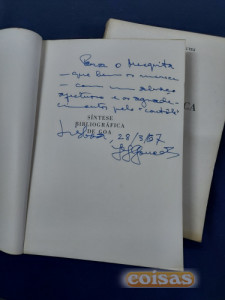 Para o Mesquita
— que bem os merece
— com um abraço
afectuoso e os agrade-
cimentos pelo
SÍNTESE
BIBLIOGRÁFICA
DE GOA
Lisboa, 28/3/67
coisas